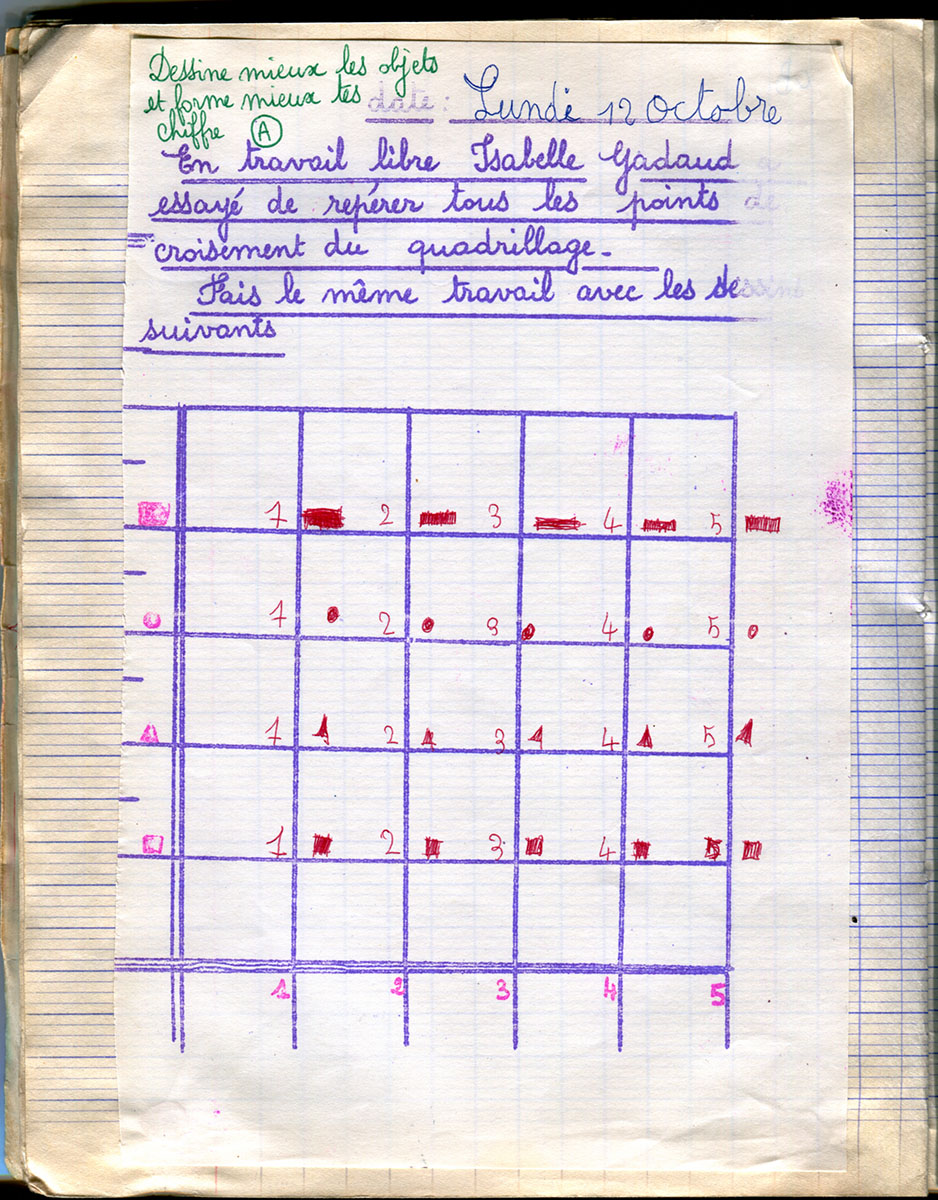 Dessine mieux les objets
et forme mieux tes
chiffre A
date : Lundi 12 Octobre
En travail libre Isabelle Gadaud a
essayé de repérer tous les points de
croisement du quadrillage.
Fais le même travail avec les dessins
suivants
1 2 3 4 5
1 2 3 4 5
1 2 3 4 5
1 2 3 4 5
1 2 3 4 5